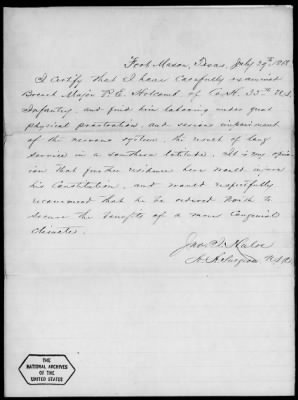 Fort Mason, Texas, July 29th 1868
I certify that I have carefully examined
Brevet Major P.E. Holcomb of Co. H. 35th U.S.
Infantry, and find him laboring under great
physical prostration, and serious impairment
of the nervous system, the result of long
service in a southern latitude. It is my opin-
ion that further residence here would injure
his Constitution, and would respectfully
recommend that he be ordered North to
secure the benefits of a more Congenial
Climate.
Jno. J.
A. A. Surgeon U.S.A.
THE
NATIONAL ARCHIVES
OF THE
UNITED STATES